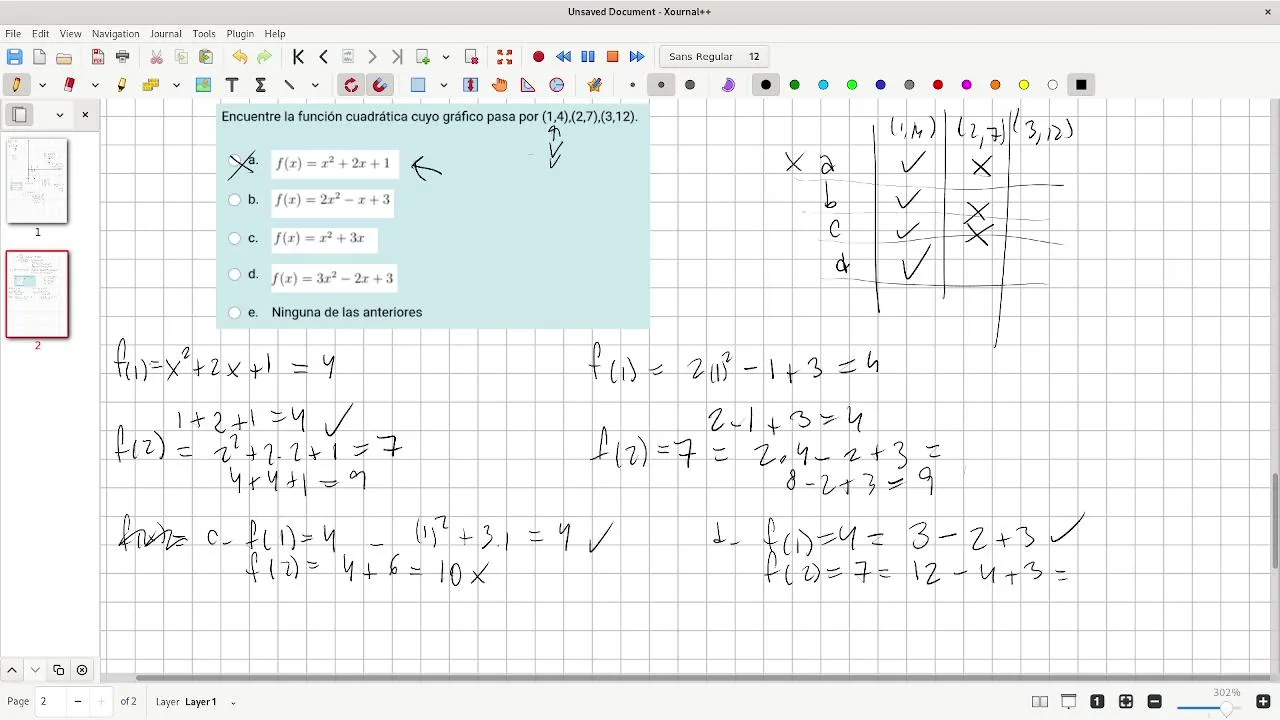 Unsaved Document - Xournal++
File Edit View Navigation Journal Tools Plugin Help
Sans Regular 12
Encuentre la función cuadrática cuyo gráfico pasa por (1,4),(2,7),(3,12).
a. f(x) = x² + 2x + 1
b. f(x) = 2x² − x + 3
c. f(x) = x² + 3x
d. f(x) = 3x² − 2x + 3
e. Ninguna de las anteriores
(1,4) (2,7) (3,12)
x a ✓ x
b ✓ x
c ✓ x
d ✓
f(1)=x²+2x+1 = 4
1+2+1=4 ✓
f(2) = 2²+2.2+1=7
4+4+1=9
f(1) = 2(1)² − 1+3 = 4
2-1+3=4
f(2)=7 = 2.4-2+3 =
8-2+3=9
c- f(1)=4 - (1)²+3.1 = 4 ✓
f(2)= 4+6=10x
d- f(1)=4= 3-2+3 ✓
f(2)=7= 12-4+3=
1
2
Page 2 of 2 Layer Layer1
302%
1